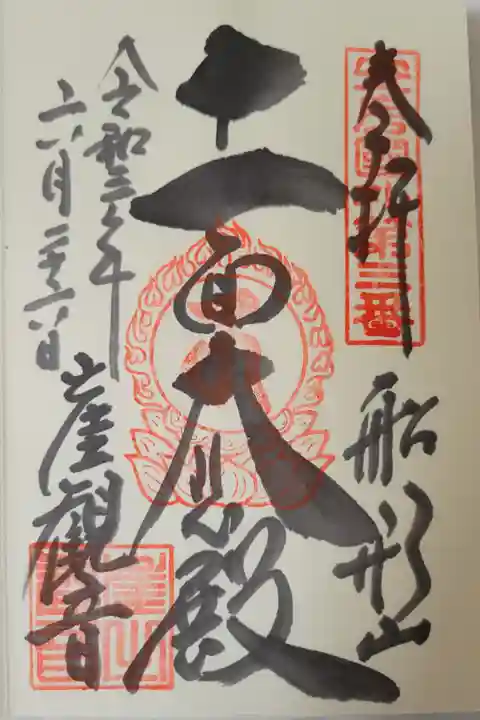 奉拝
第三番
船形山
十一面大悲殿
令和三年
六月二十六日
崖觀音